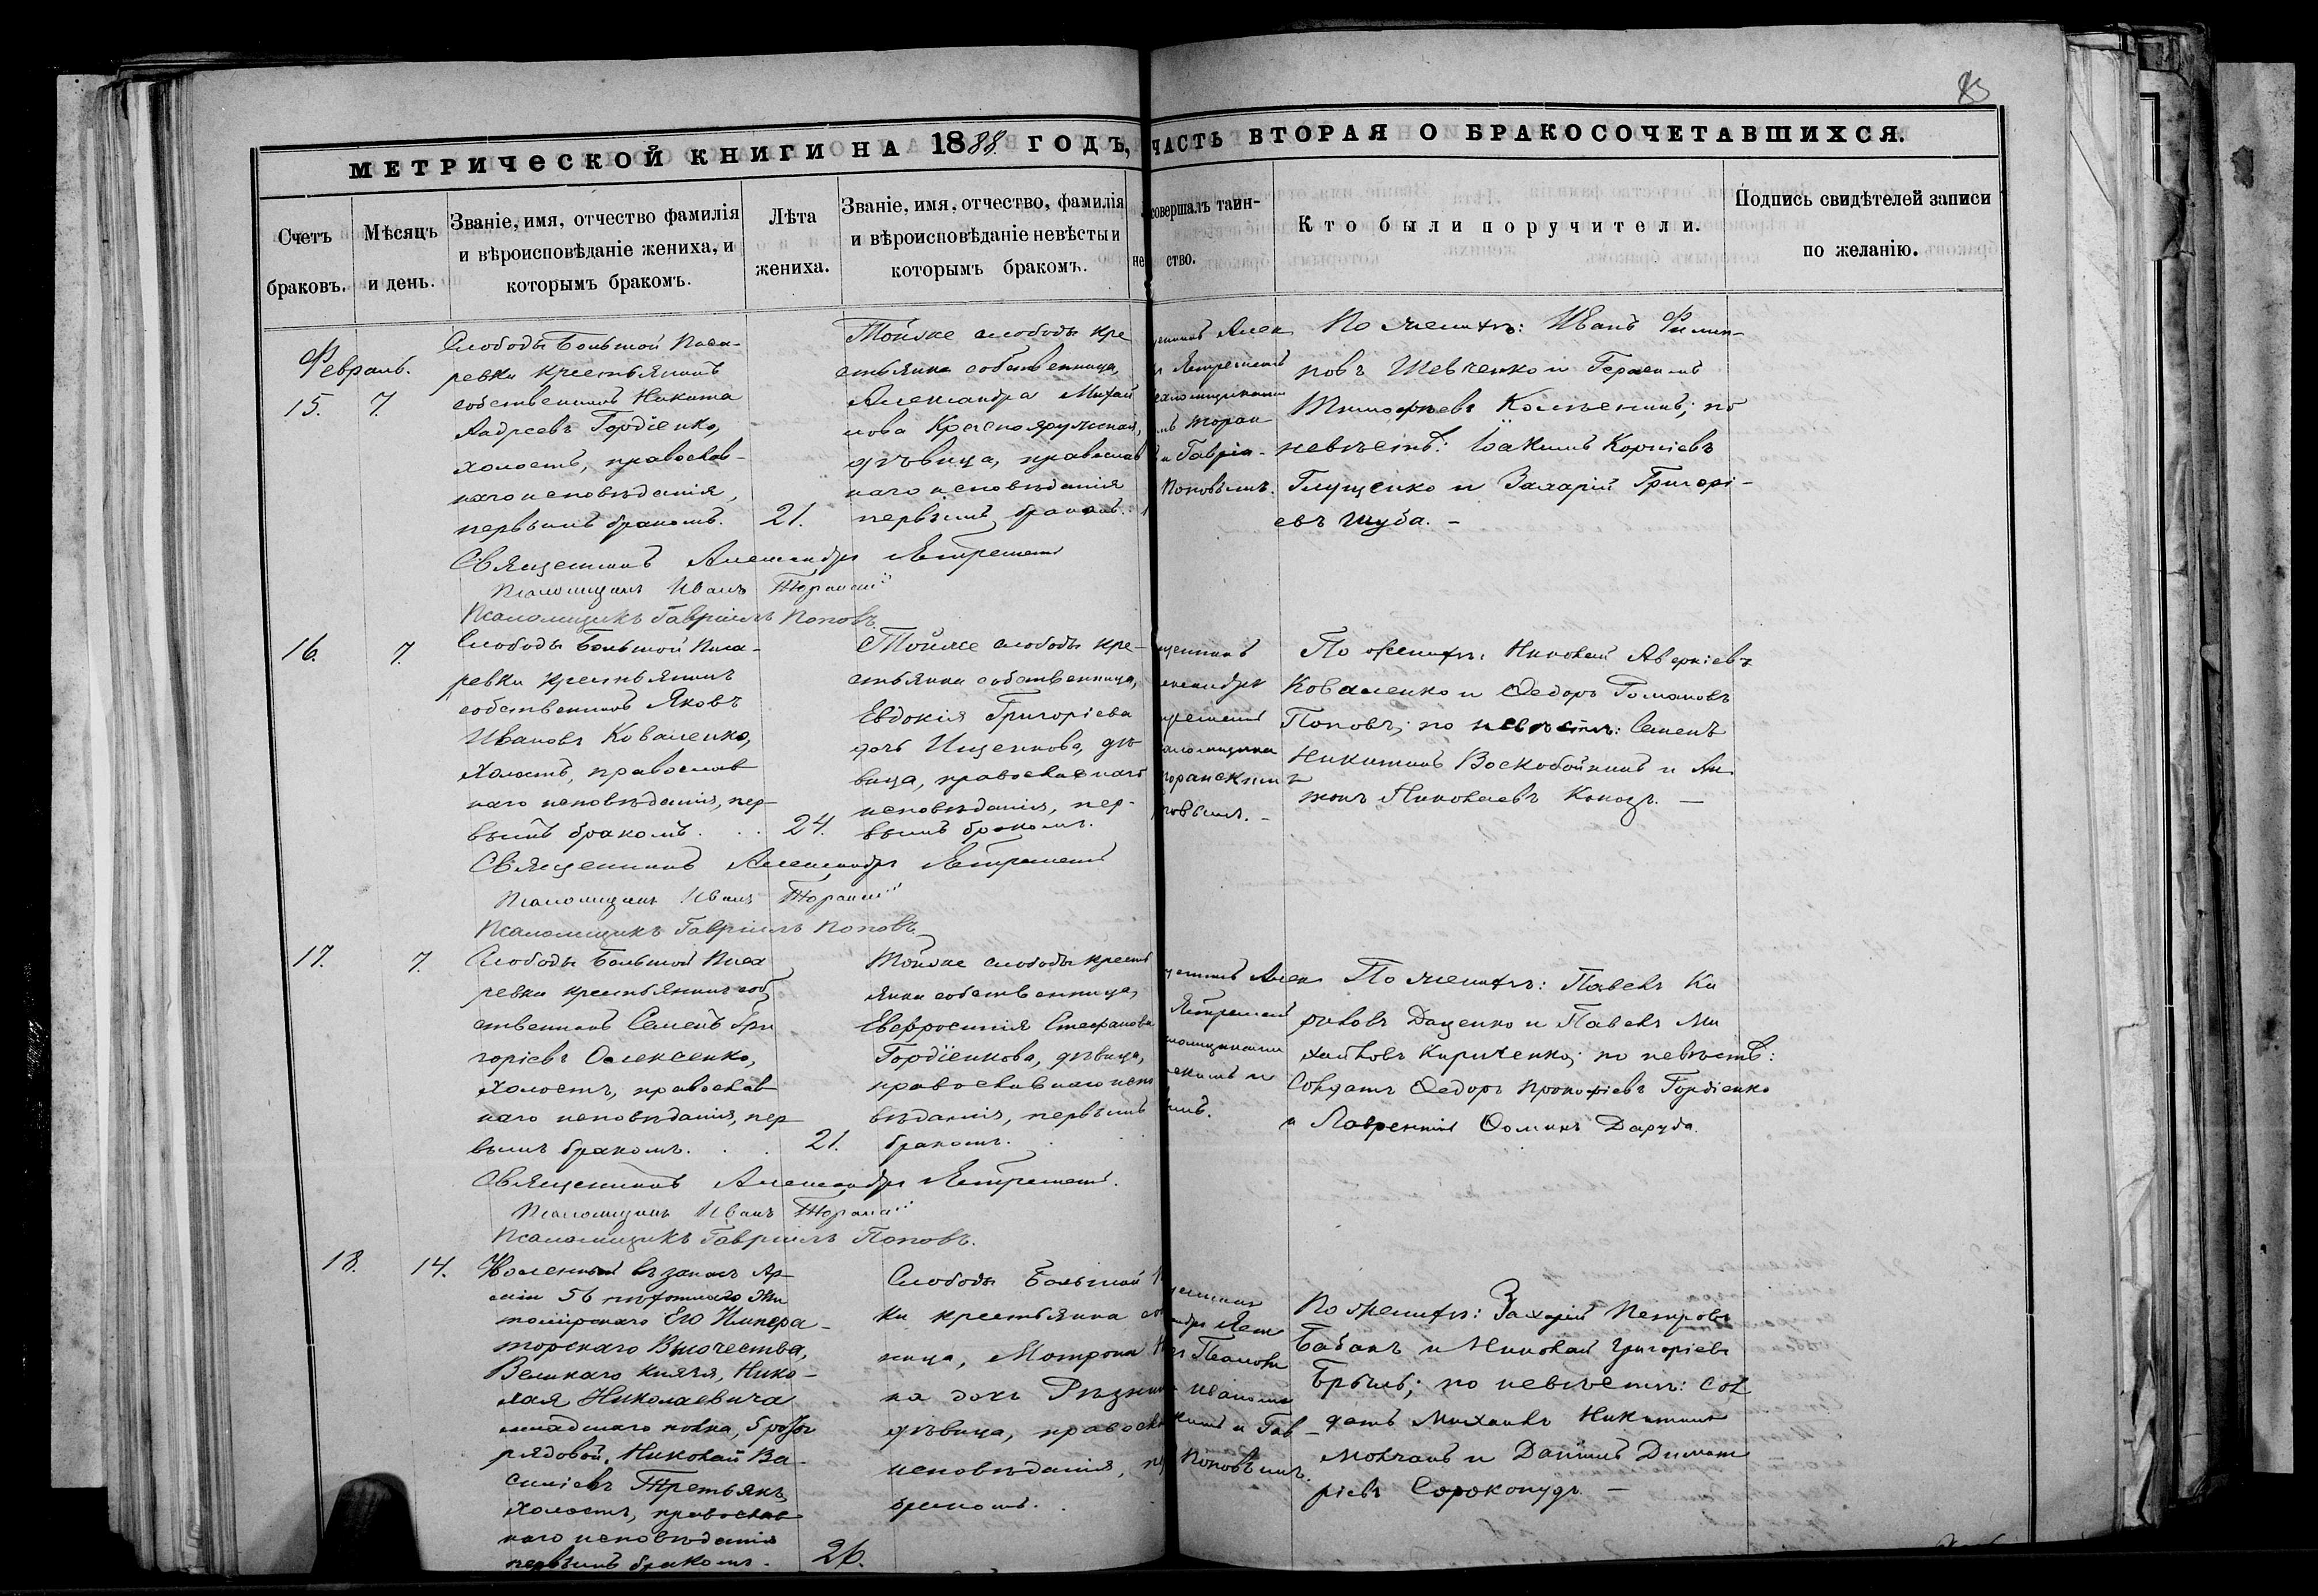 83
МЕТРИЧЕСКОЙ КНИГИ НА 1888 ГОДЪ, ЧАСТЬ ВТОРАЯ О БРАКОСОЧЕТАВШИХСЯ.
Счетъ
браковъ.
Мѣсяцъ
и день.
Званіе, имя, отчество фамилія
и вѣроисповѣданіе жениха, и
которымъ бракомъ.
Лѣта
жениха.
Званіе, имя, отчество, фамилія
и вѣроисповѣданіе невѣсты и
которымъ бракомъ.
не
совершалъ таин-
ство.
Кто были поручители.
Подпись свидѣтелей записи
по желанію.
Февраль.
15. 7.
Слободы Большой Писа-
ревки крестьянинъ
собственникъ Никита
Андреевъ Гордіенко,
холостъ, православ-
наго исповѣданія,
первымъ бракомъ.
21.
Тойже слободы кре
стьянка собственница,
Александра Михай
лова Краснояружская,
дѣвица, православ
наго исповѣданія
первымъ бракомъ.
Гавріи-
Поповымъ.
По женихѣ: Иванъ Филип-
повъ Шевченко и Герасимъ
Тимофѣевъ ; по
невѣстѣ: Іоакимъ Корніевъ
Глущенко и Захарій Григорі-
евъ Шуба. -
Священникъ Александръ
Псаломщикъ Иванъ Торанскій
Псаломщикъ Гавріилъ Поповъ.
16. 7.
Слободы Большой Писа-
ревки крестьянинъ
собственникъ Яковъ
Ивановъ Коваленко,
холостъ, православ
наго исповѣданія, пер-
вымъ бракомъ. . .
24.
Тойже слободы кре-
стьянка собственница,
Евдокія Григоріева
дочь Ищенкова, дѣ
вица, православнаго
исповѣданія, пер-
вымъ бракомъ.
По женихѣ: Николай Аверкіевъ
Коваленко и Ѳедоръ
Поповъ; по невѣстѣ: Семенъ
Никитинъ Воскобойникъ и Ан
тонъ Николаевъ -
Священникъ Александръ
Псаломщикъ Иванъ Торанскій
Псаломщикъ Гавріилъ Поповъ.
17. 7.
Слободы Большой Писа
ревки крестьянинъ соб
ственникъ Семенъ Гри
горіевъ Олексенко,
холостъ, православ-
наго исповѣданія, пер
вымъ бракомъ. . .
21.
Тойже слободы кресть
янка собственница,
Евфросинія Стефанова
Гордіенкова, дѣвица,
православнаго испо
вѣданія, первымъ
бракомъ.
По женихѣ: Павелъ Ки
риловъ Даценко и Павелъ Ми
хайловъ Кириченко; по невѣстѣ:
Солдатъ Ѳедоръ Прокофіевъ Гордіенко
и Лаврентій Ѳоминъ Даруда.
Священникъ Александръ
Псаломщикъ Иванъ Торанскій
Псаломщикъ Гавріилъ Поповъ.
18. 14.
Уволенный въ запасъ Ар-
міи 56 пѣхотнаго Жи
томірскаго Его Импера-
торскаго Высочества,
Великаго Князя, Нико-
лая Николаевича
младшаго полка, 5 роты
рядовой, Николай Ва-
силіевъ Третьякъ,
холостъ, православ
наго исповѣданія
первымъ бракомъ.
26.
Слободы Большой
ки крестьянка
ница, Матрона
на дочь
дѣвица, правосла
исповѣданія,
бракомъ.
и Гав-
Поповымъ.
По женихѣ: Захарій Петровъ
Бабакъ и Николай Григоріевъ
; по невѣстѣ: Сол
датъ Михаилъ Никитинъ
Молчанъ и Даніилъ Димит
ріевъ Сорокопудъ. -